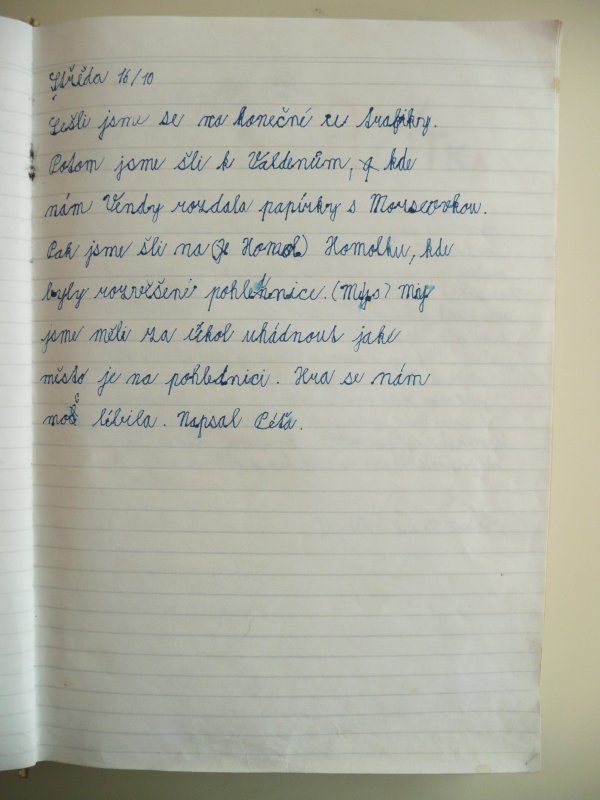 Středa 16/10
Sešli jsme se na konečné u trafiky.
Potom jsme šli k Valdenům, kde
nám Vendy rozdala papírky s Morseovkou.
Pak jsme šli na (je Homol) Homolku, kde
byly rozvěšení pohlednice. (Mys) My
jsme měli za úkol uhádnout jaké
místo je na pohlednici. Hra se nám
moc líbila. Napsal Péťa.